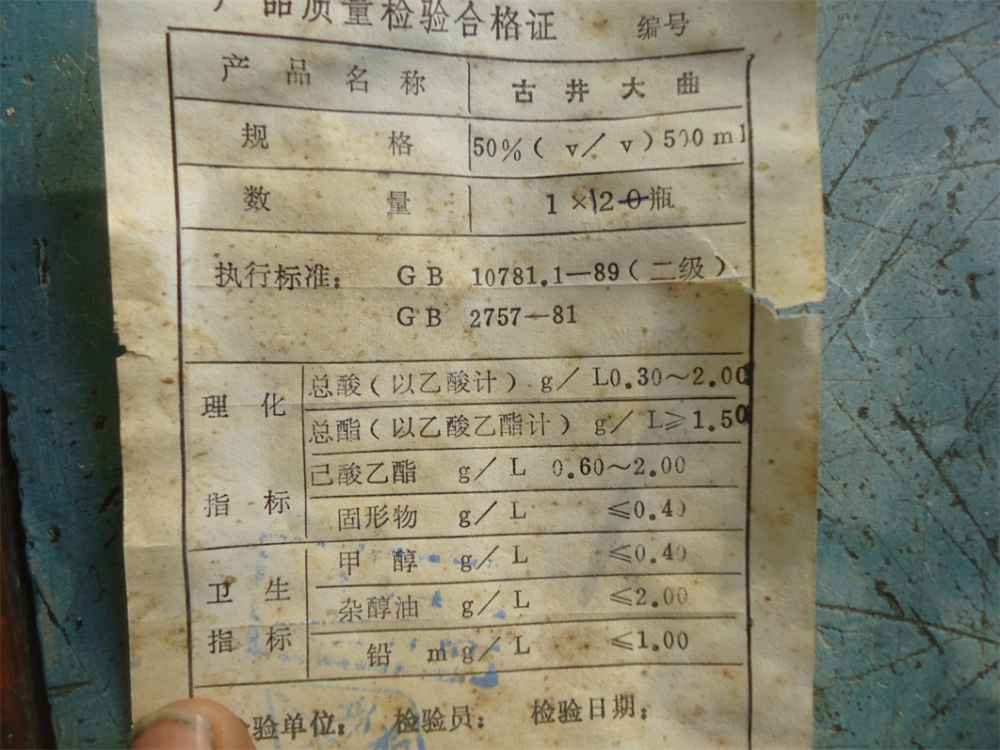 产品质量检验合格证 编号
产品名称 古井大曲
规格 50%(v/v)500ml
数量 1×12瓶
执行标准: GB 10781.1—89(二级)
GB 2757—81
理化指标
总酸(以乙酸计) g/L 0.30～2.00
总酯(以乙酸乙酯计) g/L ≥1.50
己酸乙酯 g/L 0.60～2.00
固形物 g/L ≤0.40
卫生指标
甲醇 g/L ≤0.40
杂醇油 g/L ≤2.00
铅 mg/L ≤1.00
检验单位: 检验员: 检验日期: